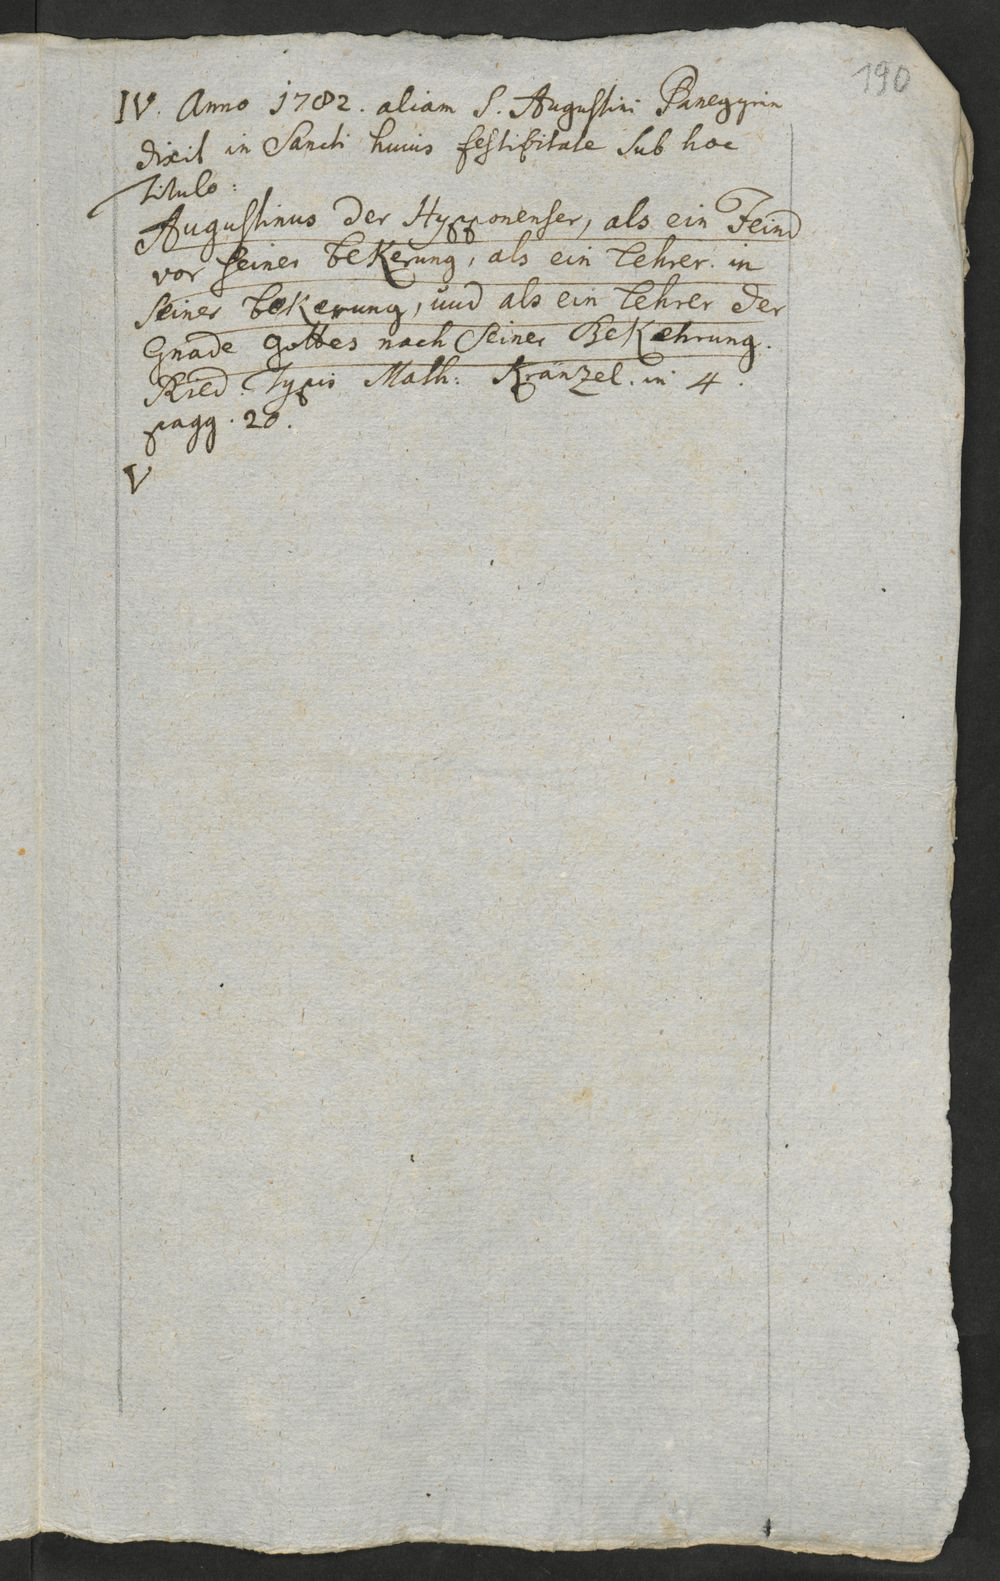 190
IV. Anno 1782. aliam S. Augustini Panegyrin
dixit in Sancti huius festivitate sub hoc
titulo:
Augustinus der Hypponenser, als ein Feind
vor seiner beKerung, als ein Lehrer in
seiner beKerung, und als ein Lehrer der
Gnade Gottes nach seiner BeKehrung.
Ried. Typis Math: Kränzel. in 4.
pagg. 20.
V